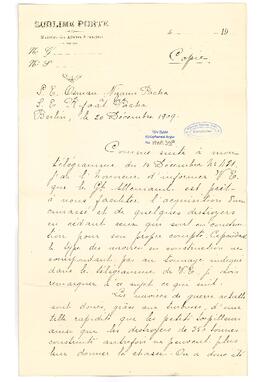 SUBLIME PORTE
Ministère des Affaires Etrangères
le 19
N: G
N: S
Copie
S. E. Osman Nizami Pacha
S. E. Rifaat Pacha
Berlin, le 20 Décembre 1909.
Comme suite à mon
télégramme du 14 Décembre
j'ai l'honneur d'informer V. E.
que le Gt Allemand est prêt
à nous faciliter l'acquisition d'un
cuirassé et de quelques destroyers
en cédant ceux qui sont en construc-
tion pour son propre compte. Cependant
le type des navires en construction ne
correspondant pas au tonnage indiqué
dans le télégramme de V. E. je dois
remarquer à ce sujet ce qui suit:
Les navires de guerre actuels
sont doués, grâce aux turbines, d'une
telle rapidité que les petits torpilleurs
ainsi que les destroyers de 350 tonnes
construits autrefois ne peuvent plus
leur donner la chasse. On a donc été